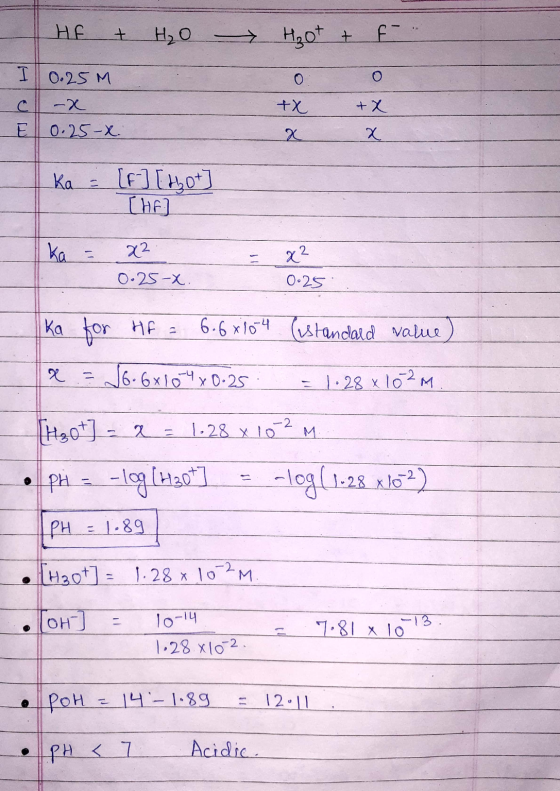 HF + H₂O ⟶ H₃O⁺ + F⁻
I 0.25 M 0 0
C -x +x +x
E 0.25-x x x
Ka = [F⁻][H₃O⁺] / [HF]
Ka = x² / 0.25-x. = x² / 0.25
Ka for HF = 6.6 x 10⁻⁴ (standard value)
x = √6.6x10⁻⁴ x 0.25 = 1.28 x 10⁻² M.
[H₃O⁺] = x = 1.28 x 10⁻² M
• PH = -log[H₃O⁺] = -log(1.28 x10⁻²)
PH = 1.89
• [H₃O⁺] = 1.28 x 10⁻² M
• [OH⁻] = 10⁻¹⁴ / 1.28 x10⁻². = 7.81 x 10⁻¹³.
• POH = 14 - 1.89 = 12.11
• PH < 7 Acidic.